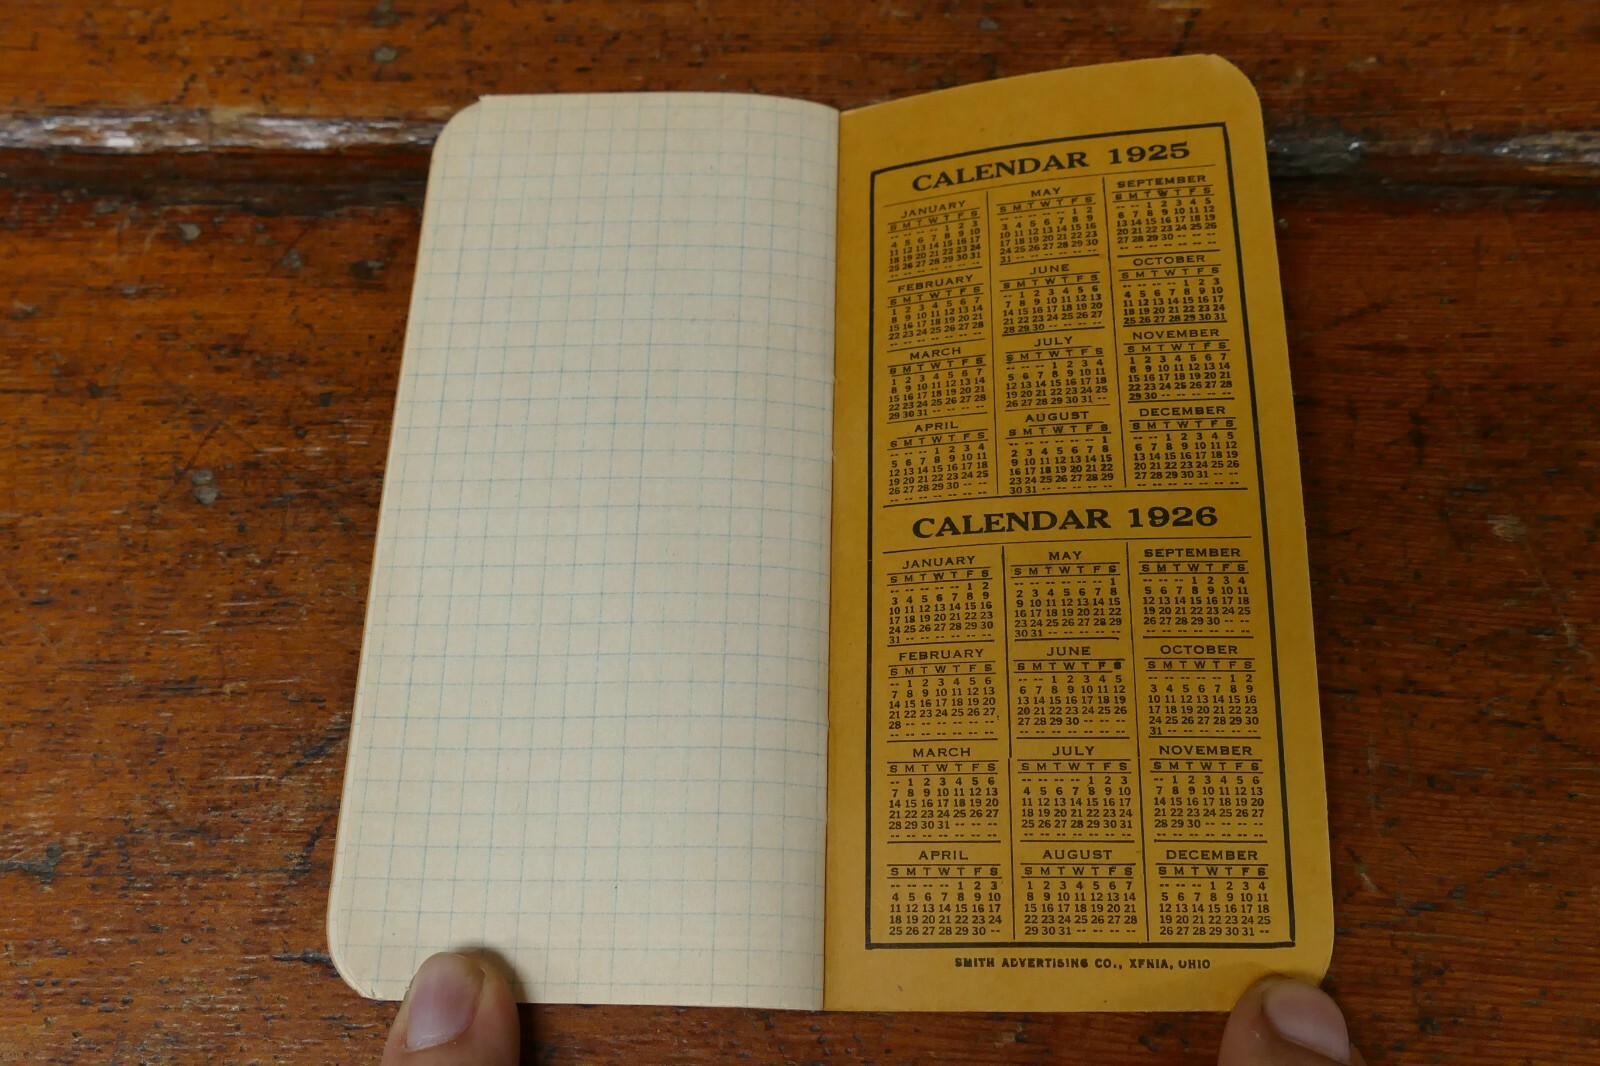 CALENDAR 1925
JANUARY
S M T W T F S
-- -- -- -- 1 2 3
4 5 6 7 8 9 10
11 12 13 14 15 16 17
18 19 20 21 22 23 24
25 26 27 28 29 30 31
-- -- -- -- -- -- --
FEBRUARY
S M T W T F S
1 2 3 4 5 6 7
8 9 10 11 12 13 14
15 16 17 18 19 20 21
22 23 24 25 26 27 28
-- -- -- -- -- -- --
MARCH
S M T W T F S
1 2 3 4 5 6 7
8 9 10 11 12 13 14
15 16 17 18 19 20 21
22 23 24 25 26 27 28
29 30 31 -- -- -- --
APRIL
S M T W T F S
-- -- -- 1 2 3 4
5 6 7 8 9 10 11
12 13 14 15 16 17 18
19 20 21 22 23 24 25
26 27 28 29 30 -- --
-- -- -- -- -- -- --
MAY
S M T W T F S
-- -- -- -- -- 1 2
3 4 5 6 7 8 9
10 11 12 13 14 15 16
17 18 19 20 21 22 23
24 25 26 27 28 29 30
31 -- -- -- -- -- --
JUNE
S M T W T F S
-- 1 2 3 4 5 6
7 8 9 10 11 12 13
14 15 16 17 18 19 20
21 22 23 24 25 26 27
28 29 30 -- -- -- --
JULY
S M T W T F S
-- -- -- 1 2 3 4
5 6 7 8 9 10 11
12 13 14 15 16 17 18
19 20 21 22 23 24 25
26 27 28 29 30 31 --
AUGUST
S M T W T F S
-- -- -- -- -- -- 1
2 3 4 5 6 7 8
9 10 11 12 13 14 15
16 17 18 19 20 21 22
23 24 25 26 27 28 29
30 31 -- -- -- -- --
SEPTEMBER
S M T W T F S
-- -- 1 2 3 4 5
6 7 8 9 10 11 12
13 14 15 16 17 18 19
20 21 22 23 24 25 26
27 28 29 30 -- -- --
-- -- -- -- -- -- --
OCTOBER
S M T W T F S
-- -- -- -- 1 2 3
4 5 6 7 8 9 10
11 12 13 14 15 16 17
18 19 20 21 22 23 24
25 26 27 28 29 30 31
NOVEMBER
S M T W T F S
1 2 3 4 5 6 7
8 9 10 11 12 13 14
15 16 17 18 19 20 21
22 23 24 25 26 27 28
29 30 -- -- -- -- --
DECEMBER
S M T W T F S
-- -- 1 2 3 4 5
6 7 8 9 10 11 12
13 14 15 16 17 18 19
20 21 22 23 24 25 26
27 28 29 30 31 -- --
-- -- -- -- -- -- --
CALENDAR 1926
JANUARY
S M T W T F S
-- -- -- -- -- 1 2
3 4 5 6 7 8 9
10 11 12 13 14 15 16
17 18 19 20 21 22 23
24 25 26 27 28 29 30
31 -- -- -- -- -- --
FEBRUARY
S M T W T F S
-- 1 2 3 4 5 6
7 8 9 10 11 12 13
14 15 16 17 18 19 20
21 22 23 24 25 26 27
28 -- -- -- -- -- --
-- -- -- -- -- -- --
MARCH
S M T W T F S
-- 1 2 3 4 5 6
7 8 9 10 11 12 13
14 15 16 17 18 19 20
21 22 23 24 25 26 27
28 29 30 31 -- -- --
-- -- -- -- -- -- --
APRIL
S M T W T F S
-- -- -- -- 1 2 3
4 5 6 7 8 9 10
11 12 13 14 15 16 17
18 19 20 21 22 23 24
25 26 27 28 29 30 --
MAY
S M T W T F S
-- -- -- -- -- -- 1
2 3 4 5 6 7 8
9 10 11 12 13 14 15
16 17 18 19 20 21 22
23 24 25 26 27 28 29
30 31 -- -- -- -- --
JUNE
S M T W T F S
-- -- 1 2 3 4 5
6 7 8 9 10 11 12
13 14 15 16 17 18 19
20 21 22 23 24 25 26
27 28 29 30 -- -- --
-- -- -- -- -- -- --
JULY
S M T W T F S
-- -- -- -- 1 2 3
4 5 6 7 8 9 10
11 12 13 14 15 16 17
18 19 20 21 22 23 24
25 26 27 28 29 30 31
-- -- -- -- -- -- --
AUGUST
S M T W T F S
1 2 3 4 5 6 7
8 9 10 11 12 13 14
15 16 17 18 19 20 21
22 23 24 25 26 27 28
29 30 31 -- -- -- --
SEPTEMBER
S M T W T F S
-- -- -- 1 2 3 4
5 6 7 8 9 10 11
12 13 14 15 16 17 18
19 20 21 22 23 24 25
26 27 28 29 30 -- --
-- -- -- -- -- -- --
OCTOBER
S M T W T F S
-- -- -- -- -- 1 2
3 4 5 6 7 8 9
10 11 12 13 14 15 16
17 18 19 20 21 22 23
24 25 26 27 28 29 30
31 -- -- -- -- -- --
NOVEMBER
S M T W T F S
-- 1 2 3 4 5 6
7 8 9 10 11 12 13
14 15 16 17 18 19 20
21 22 23 24 25 26 27
28 29 30 -- -- -- --
-- -- -- -- -- -- --
DECEMBER
S M T W T F S
-- -- -- 1 2 3 4
5 6 7 8 9 10 11
12 13 14 15 16 17 18
19 20 21 22 23 24 25
26 27 28 29 30 31 --
SMITH ADVERTISING CO., XENIA, OHIO